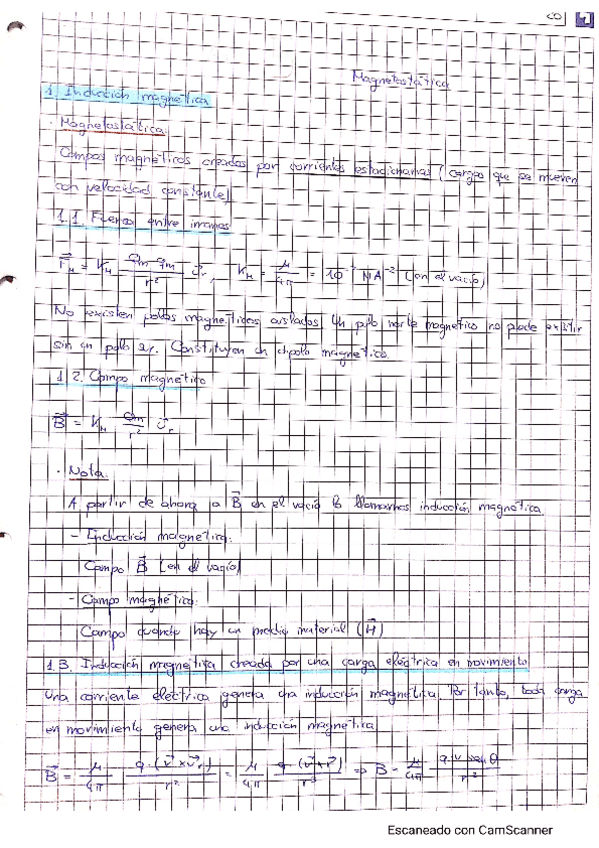 Magnetostática
1. Inducción magnética
· Magnetostática:
Campos magnéticos creados por corrientes estacionarias (cargas que se mueven
con velocidad constante)
1.1. Fuerzas entre imanes
F⃗_M = K_M q_m q_m / r² u⃗_r, K_M = μ/4π = 10⁻⁷ NA⁻² (en el vacío)
No existen polos magnéticos aislados. Un polo norte magnético no puede existir
sin un polo sur. Constituyen un dipolo magnético.
1.2. Campo magnético
B⃗ = K_M q_m / r² u⃗_r
· Nota:
A partir de ahora a B⃗ en el vacío lo llamaremos inducción magnética
- Inducción magnética:
Campo B⃗ (en el vacío)
- Campo magnético:
Campo cuando hay un medio material (H⃗)
1.3. Inducción magnética creada por una carga eléctrica en movimiento
Una corriente eléctrica genera una inducción magnética. Por tanto, toda carga
en movimiento genera una inducción magnética
B⃗ = μ/4π q·(v⃗×u⃗_r)/r² = μ/4π q·(v⃗×r⃗)/r³ ⇒ B = μ/4π q·v sen θ/r²
Escaneado con CamScanner